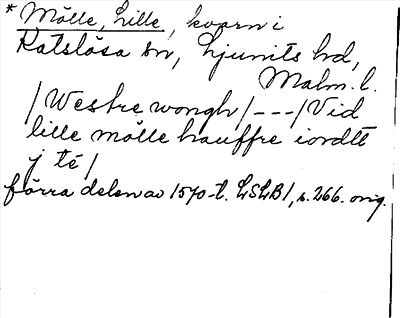 * Mölle, Lille, kvarn i
Katslösa sn, Ljunits hd,
Malm. l.
/Westre wongh/---/Vid
lille mölle hauffre iordtt
j té/
förra delen av 1570-t. LSLB1, s. 266. orig.